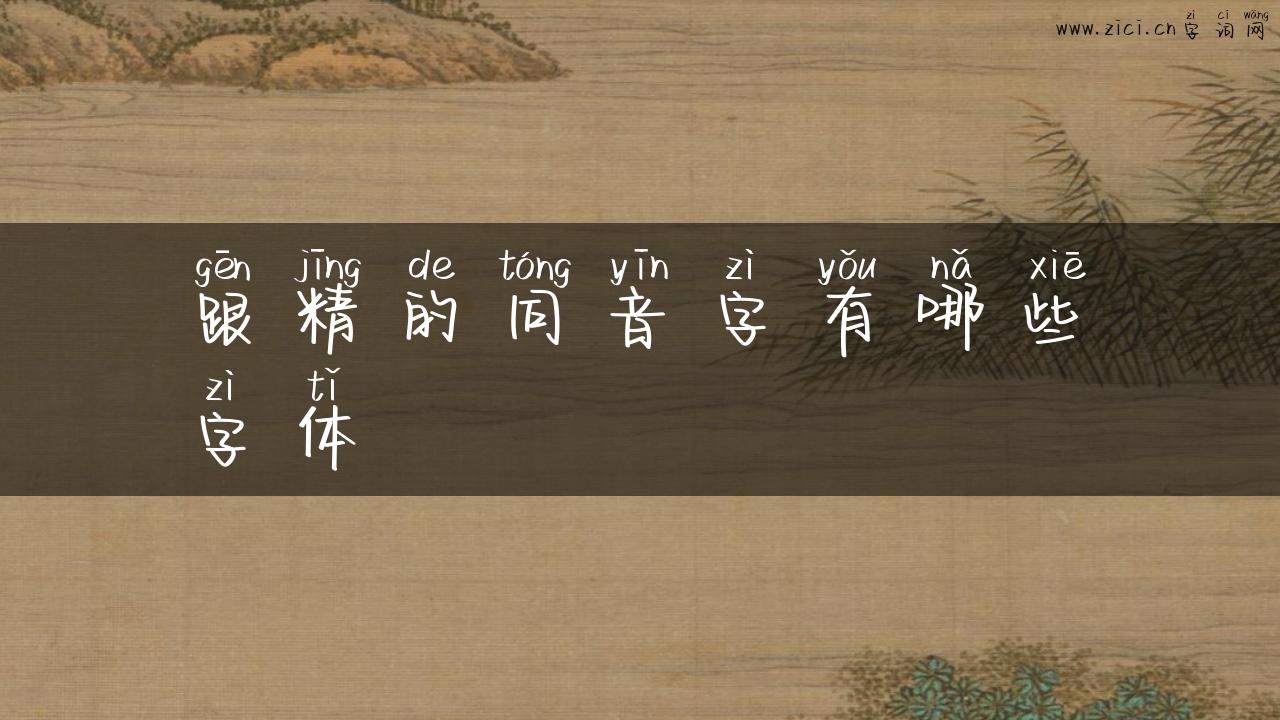 www.zici.cn字词网
zì cí wǎng
gēn jīng de tóng yīn zì yǒu nǎ xiē
跟精的同音字有哪些
zì tǐ
字体